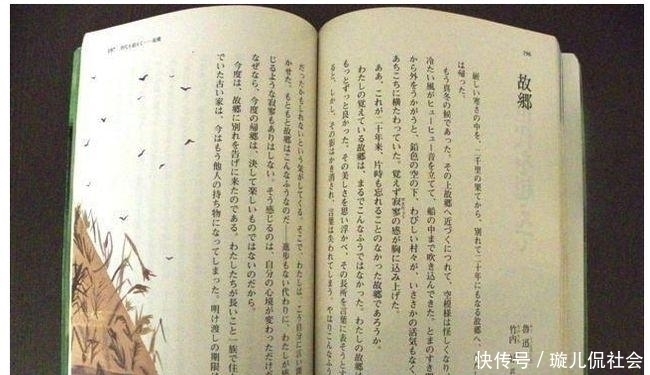 296
故郷
魯迅
竹内
厳しい寒さの中を、二千里の果てから、別れて二十年にもなる故郷へ、
は帰った。
もう真冬の候であった。その上故郷へ近づくにつれて、空模様は怪しくなり、
冷たい風がヒューヒュー音を立てて、船の中まで吹き込んできた。とまのすき
から外をうかがうと、鉛色の空の下、わびしい村々が、いささかの活気もなく、
あちこちに横たわっていた。覚えず寂寥の感が胸に込み上げた。
ああ、これが二十年来、片時も忘れることのなかった故郷であろうか。
わたしの覚えている故郷は、まるでこんなふうではなかった。わたしの
もっとずっと良かった。その美しさを思い浮かべ、その長所を言葉に表そうとす
ると、しかし、その影はかき消され、言葉は失われてしまう。やはりこんなふう
297 時代を超えて——故郷
だったかもしれないという気がしてくる。そこで、わたしは、こう自分に言い聞
かせた。もともと故郷はこんなふうなのだ——進歩もない代わりに、わたしが感
じるような寂寥もありはしない。そう感じるのは、自分の心境が変わっただけだ
なぜなら、今度の帰郷は、決して楽しいものではないのだから。
今度は、故郷に別れを告げに来たのである。わたしたちが長いこと一族で住
でいた古い家は、今はもう他人の持ち物になってしまった。明け渡しの期限は
快传号／璇儿侃社会